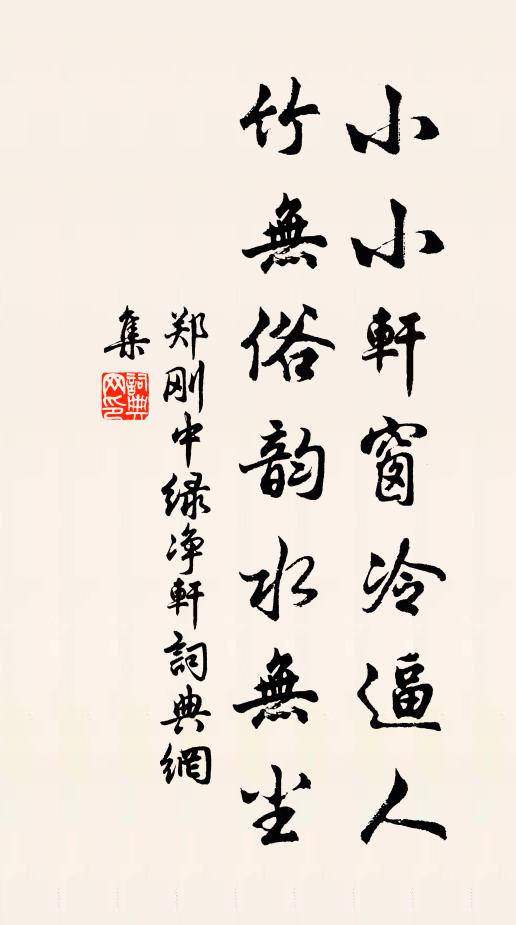 小小軒窗冷逼人
竹無俗韵水無尘
郑刚中绿净軒詞典網
集
詞典
网印